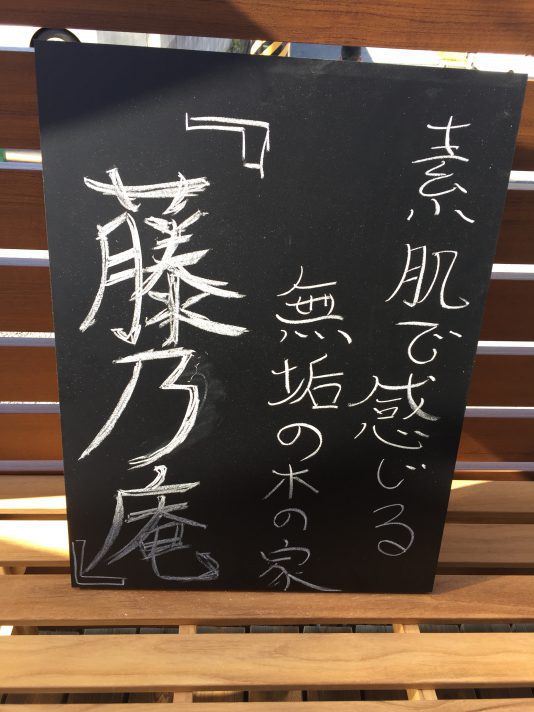 素肌で感じる
無垢の木の家
『藤乃庵』